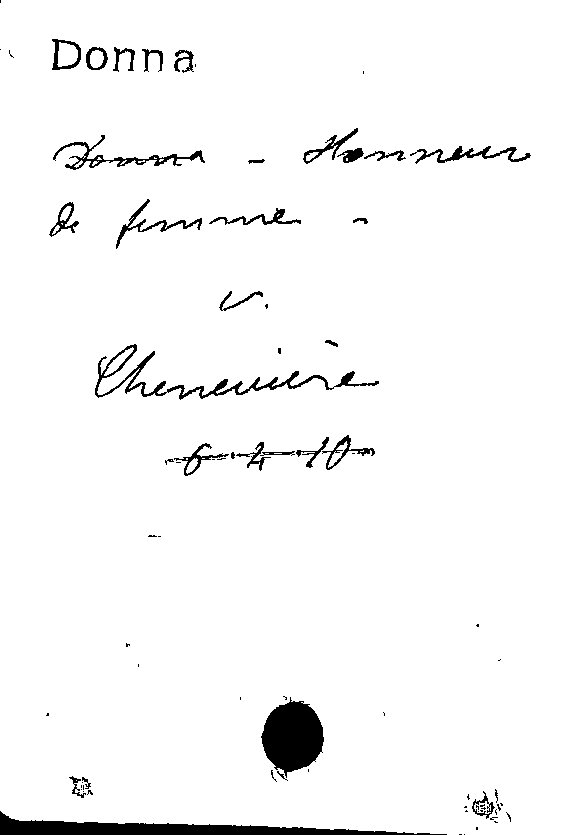 Donna
Donna - Honneur
de femme -
v.
Chenevière
6.4.10